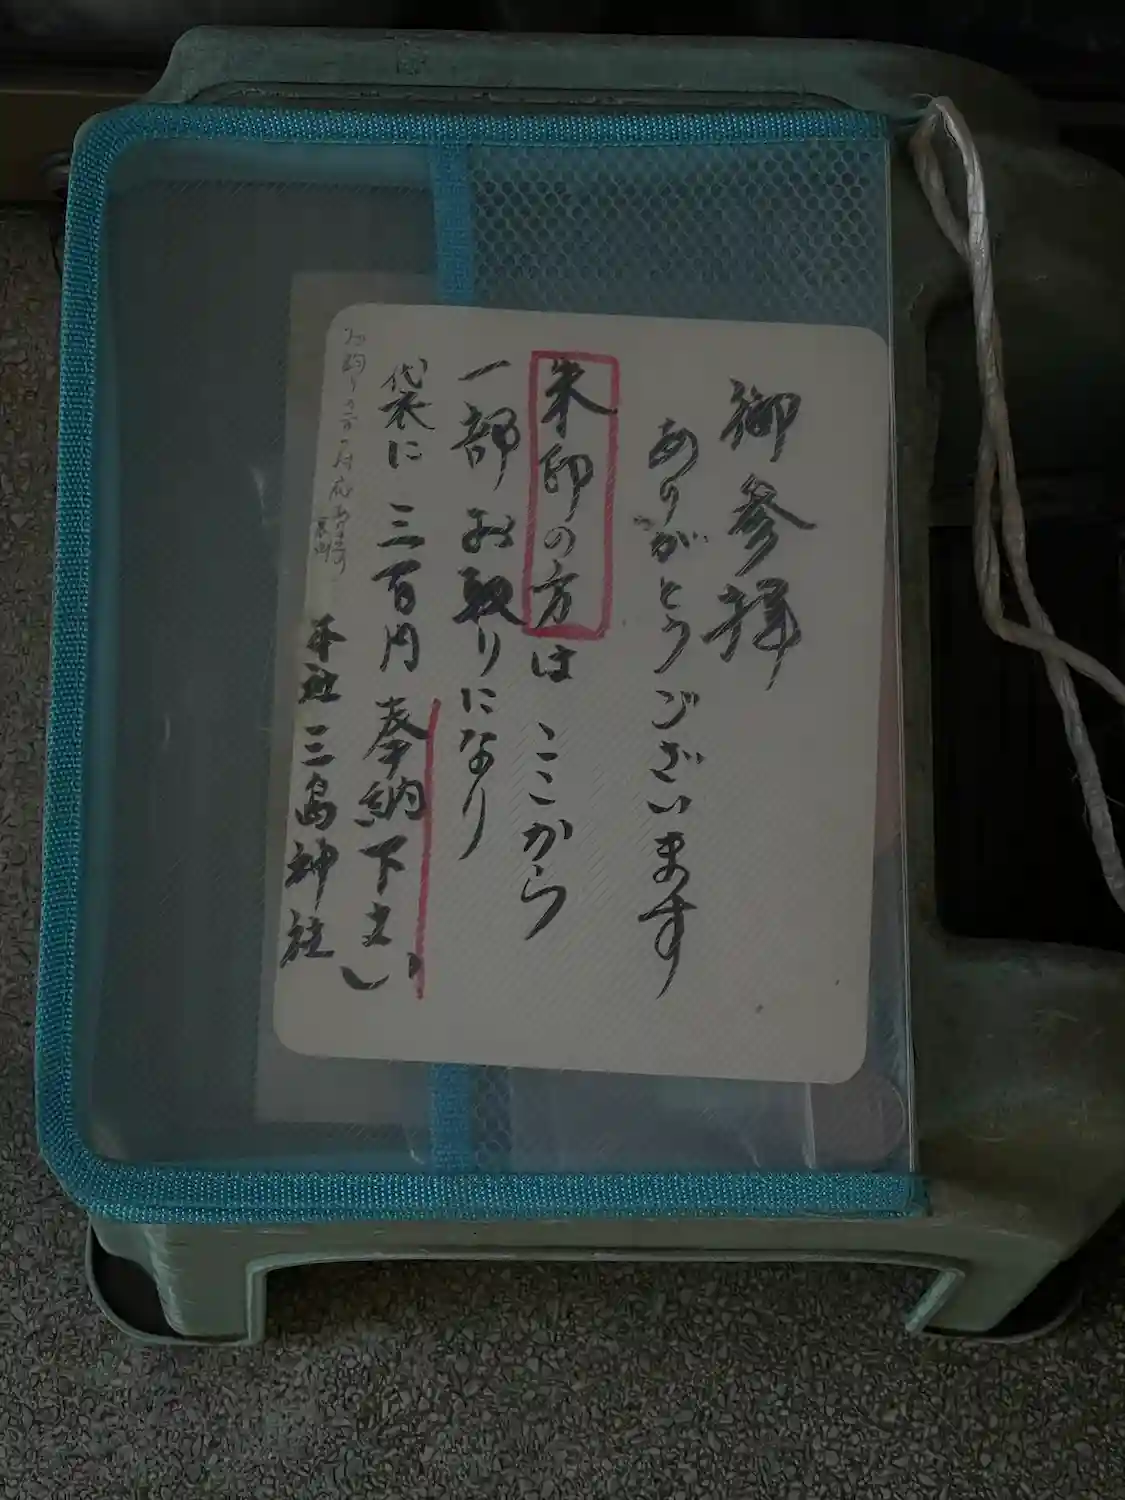 御参拝
ありがとうございます
朱印の方は ここから
一部お取りになり
袋に 三百円 奉納下さい
三島神社